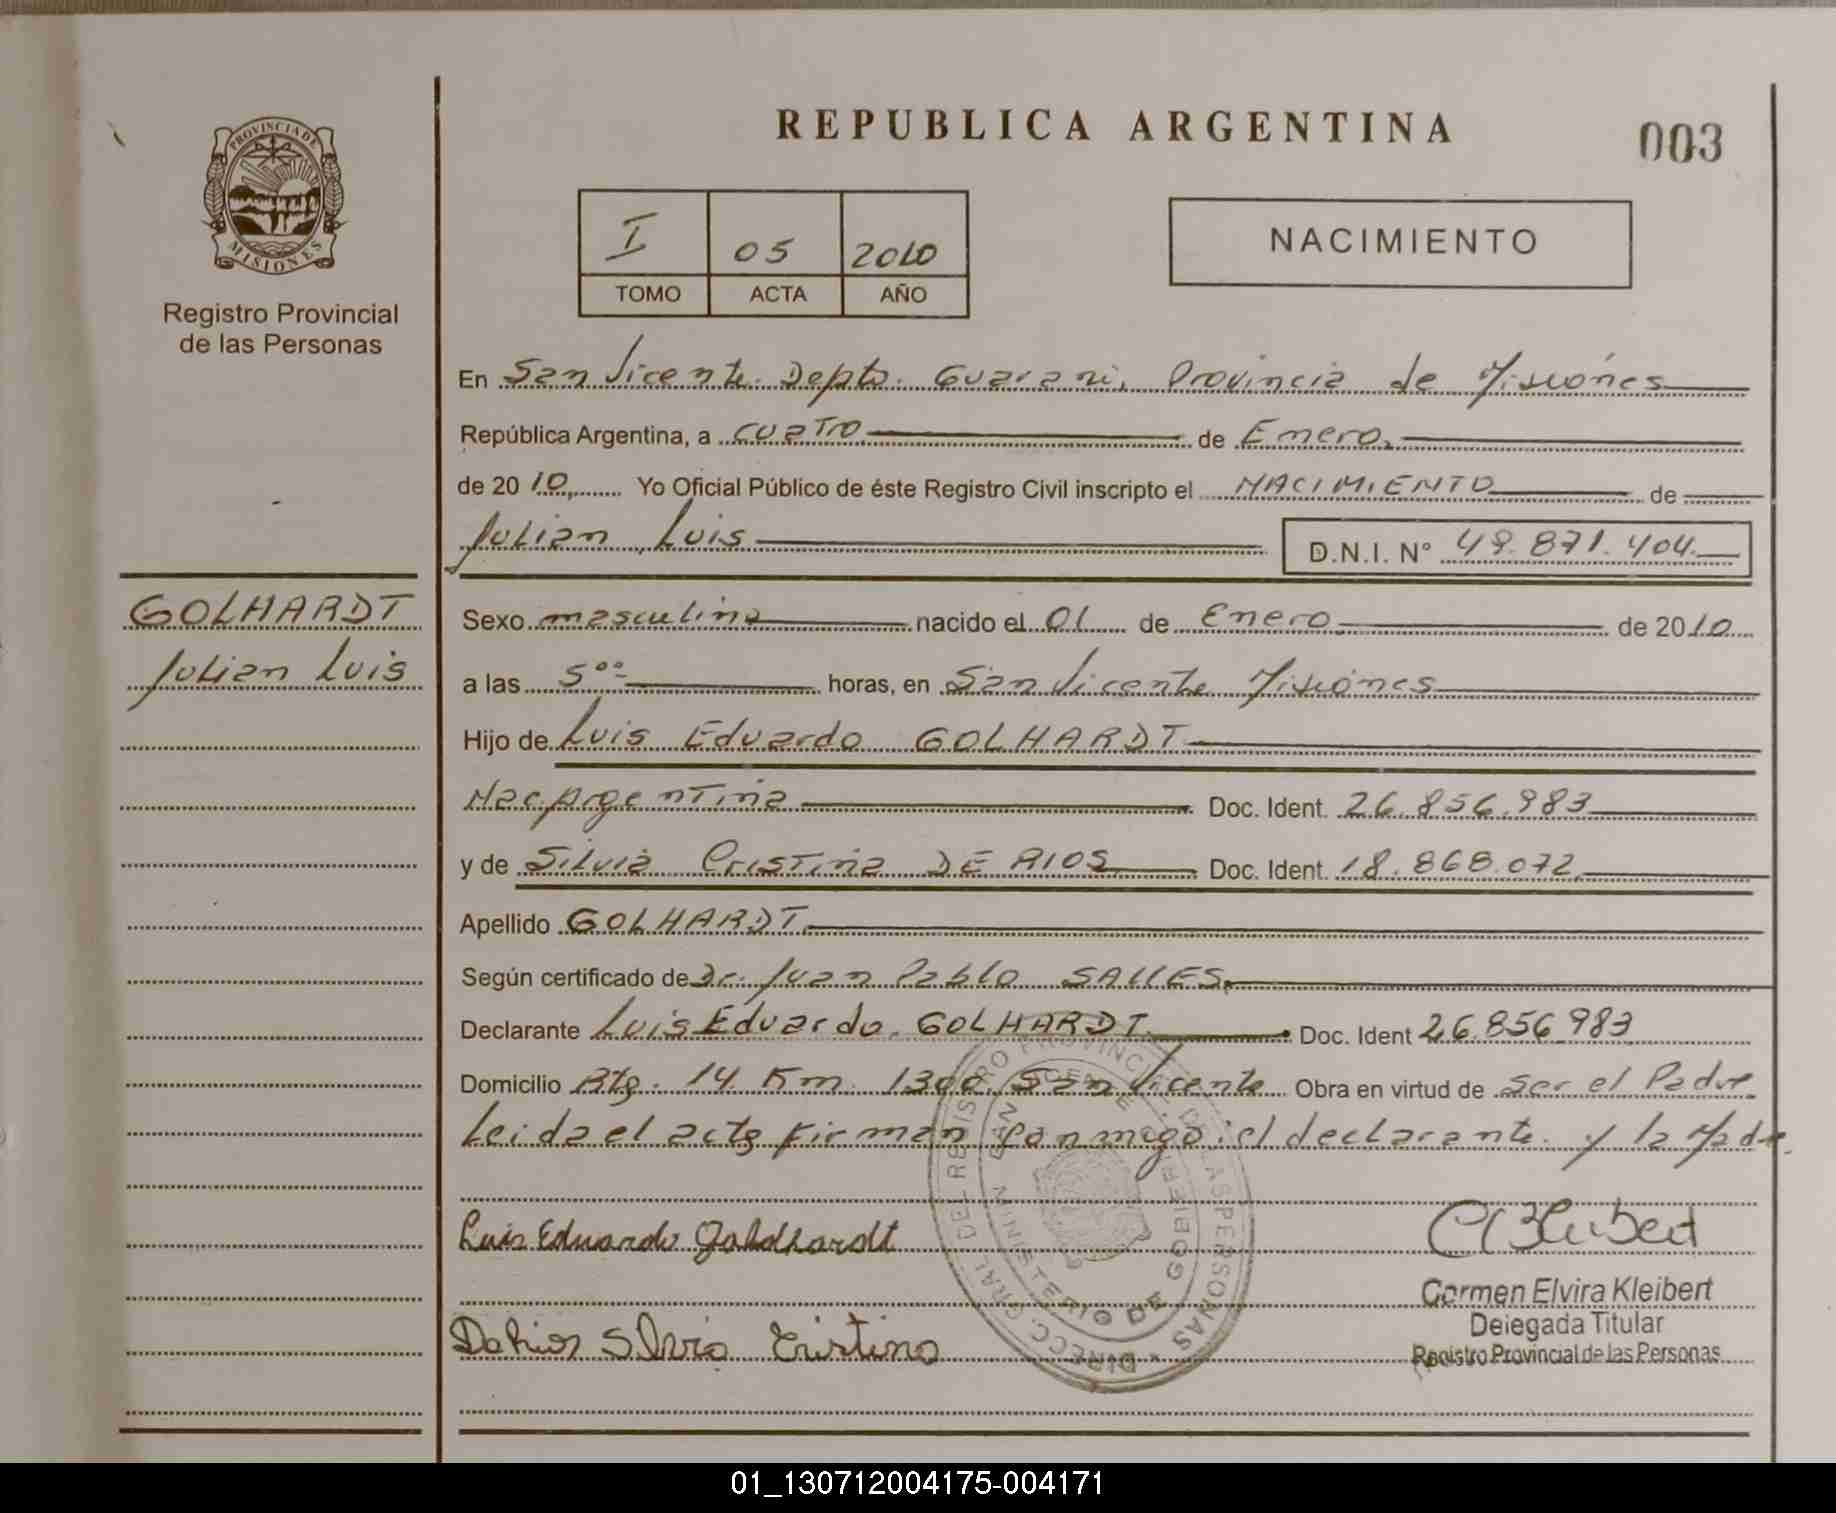 REPUBLICA ARGENTINA
003
PROVINCIA DE
MISIONES
Registro Provincial
de las Personas
I 05 2010
TOMO ACTA AÑO
NACIMIENTO
En San Vicente. Depto. Guarani, Provincia de Misiónes
República Argentina, a cuatro de Enero,
de 2010, Yo Oficial Público de éste Registro Civil inscripto el NACIMIENTO de
Julian Luis D.N.I. Nº 49.871.404.
GOLHARDT
Julian Luis
Sexo masculino nacido el 01 de Enero. de 2010
a las 5°°- horas, en San Vicente Misiónes
Hijo de Luis Eduardo GOLHARDT
Nac. Argentina Doc. Ident. 26.856.983
y de Silvia Cristina DE RIOS Doc. Ident. 18.868.072.
Apellido GOLHARDT
Según certificado de Dr. Juan Pablo SALLES.
Declarante Luis Eduardo. GOLHARDT. Doc. Ident 26.856.983
Domicilio Rta. 14 Km 1300 San Vicente Obra en virtud de ser el Padre
Leida el acta firman conmigo: el declarante. y la Madre.
Luis Eduardo Goldhardt
Silvia Cristina
Carmen Elvira Kleibert
Delegada Titular
Registro Provincial de las Personas
DIRECC. GRAL. DEL REGISTRO PROVINCIAL DE LAS PERSONAS
MINISTERIO DE GOBIERNO
SAN VICENTE
01_130712004175-004171